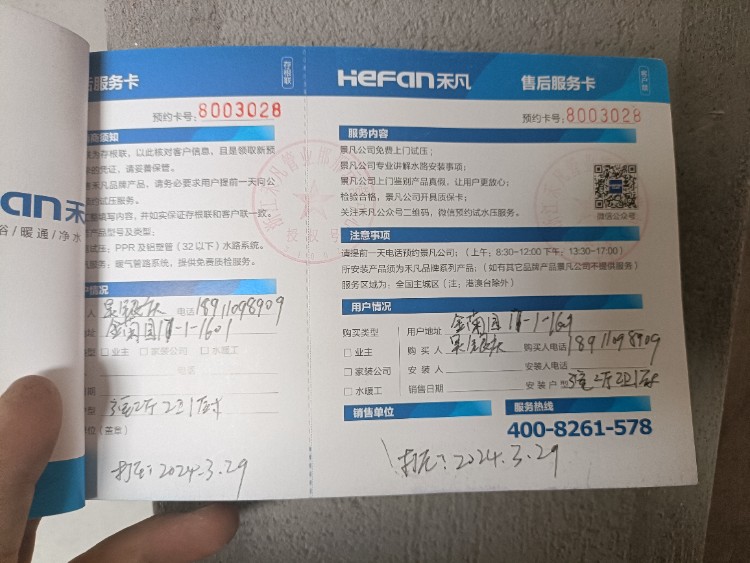 an禾
浴/暖通/净水
后服务卡
存根联
预约卡号: 8003028
须知
为存根联，以此核对客户信息，且是领取新预
的凭证，请妥善保管。
禾凡品牌产品，请务必要求用户提前一天向公
约试压服务。
填写内容，并如实保证存根联和客户联一致。
产品型号及类型:
试压: PPR及铝塑管（32以下）水路系统。
服务: 暖气管路系统，提供免费质检服务。
情况
人 电话 18911098909
址 金南园 -1-1601
型 □ 业主 □ 家装公司 □ 水暖工
电话
期
型 3室2厅2卫1厨
位（盖章）
打压: 2024.3.29
HeFan禾凡
售后服务卡
客户联
预约卡号: 8003028
服务内容
景凡公司免费上门试压;
景凡公司专业讲解水路安装事项;
景凡公司上门鉴别产品真假，让用户更放心;
检验合格，景凡公司开具质保卡;
关注禾凡公众号二维码，微信预约试水压服务。
微信公众号
注意事项
请提前一天电话预约景凡公司;（上午: 8:30-12:00 下午: 13:30-17:00）
所安装产品须为禾凡品牌系列产品;（如有其它品牌产品景凡公司不提供服务）
服务区域为: 全国主城区（注: 港澳台除外）
用户情况
购买类型 用户地址 金南园 -1-1601
□ 业主 购买人 购买人电话 18911098909
□ 家装公司 安装人 安装人电话
□ 水暖工 销售日期 安装户型 3室2厅2卫1厨
销售单位 服务热线
400-8261-578
打压: 2024.3.29